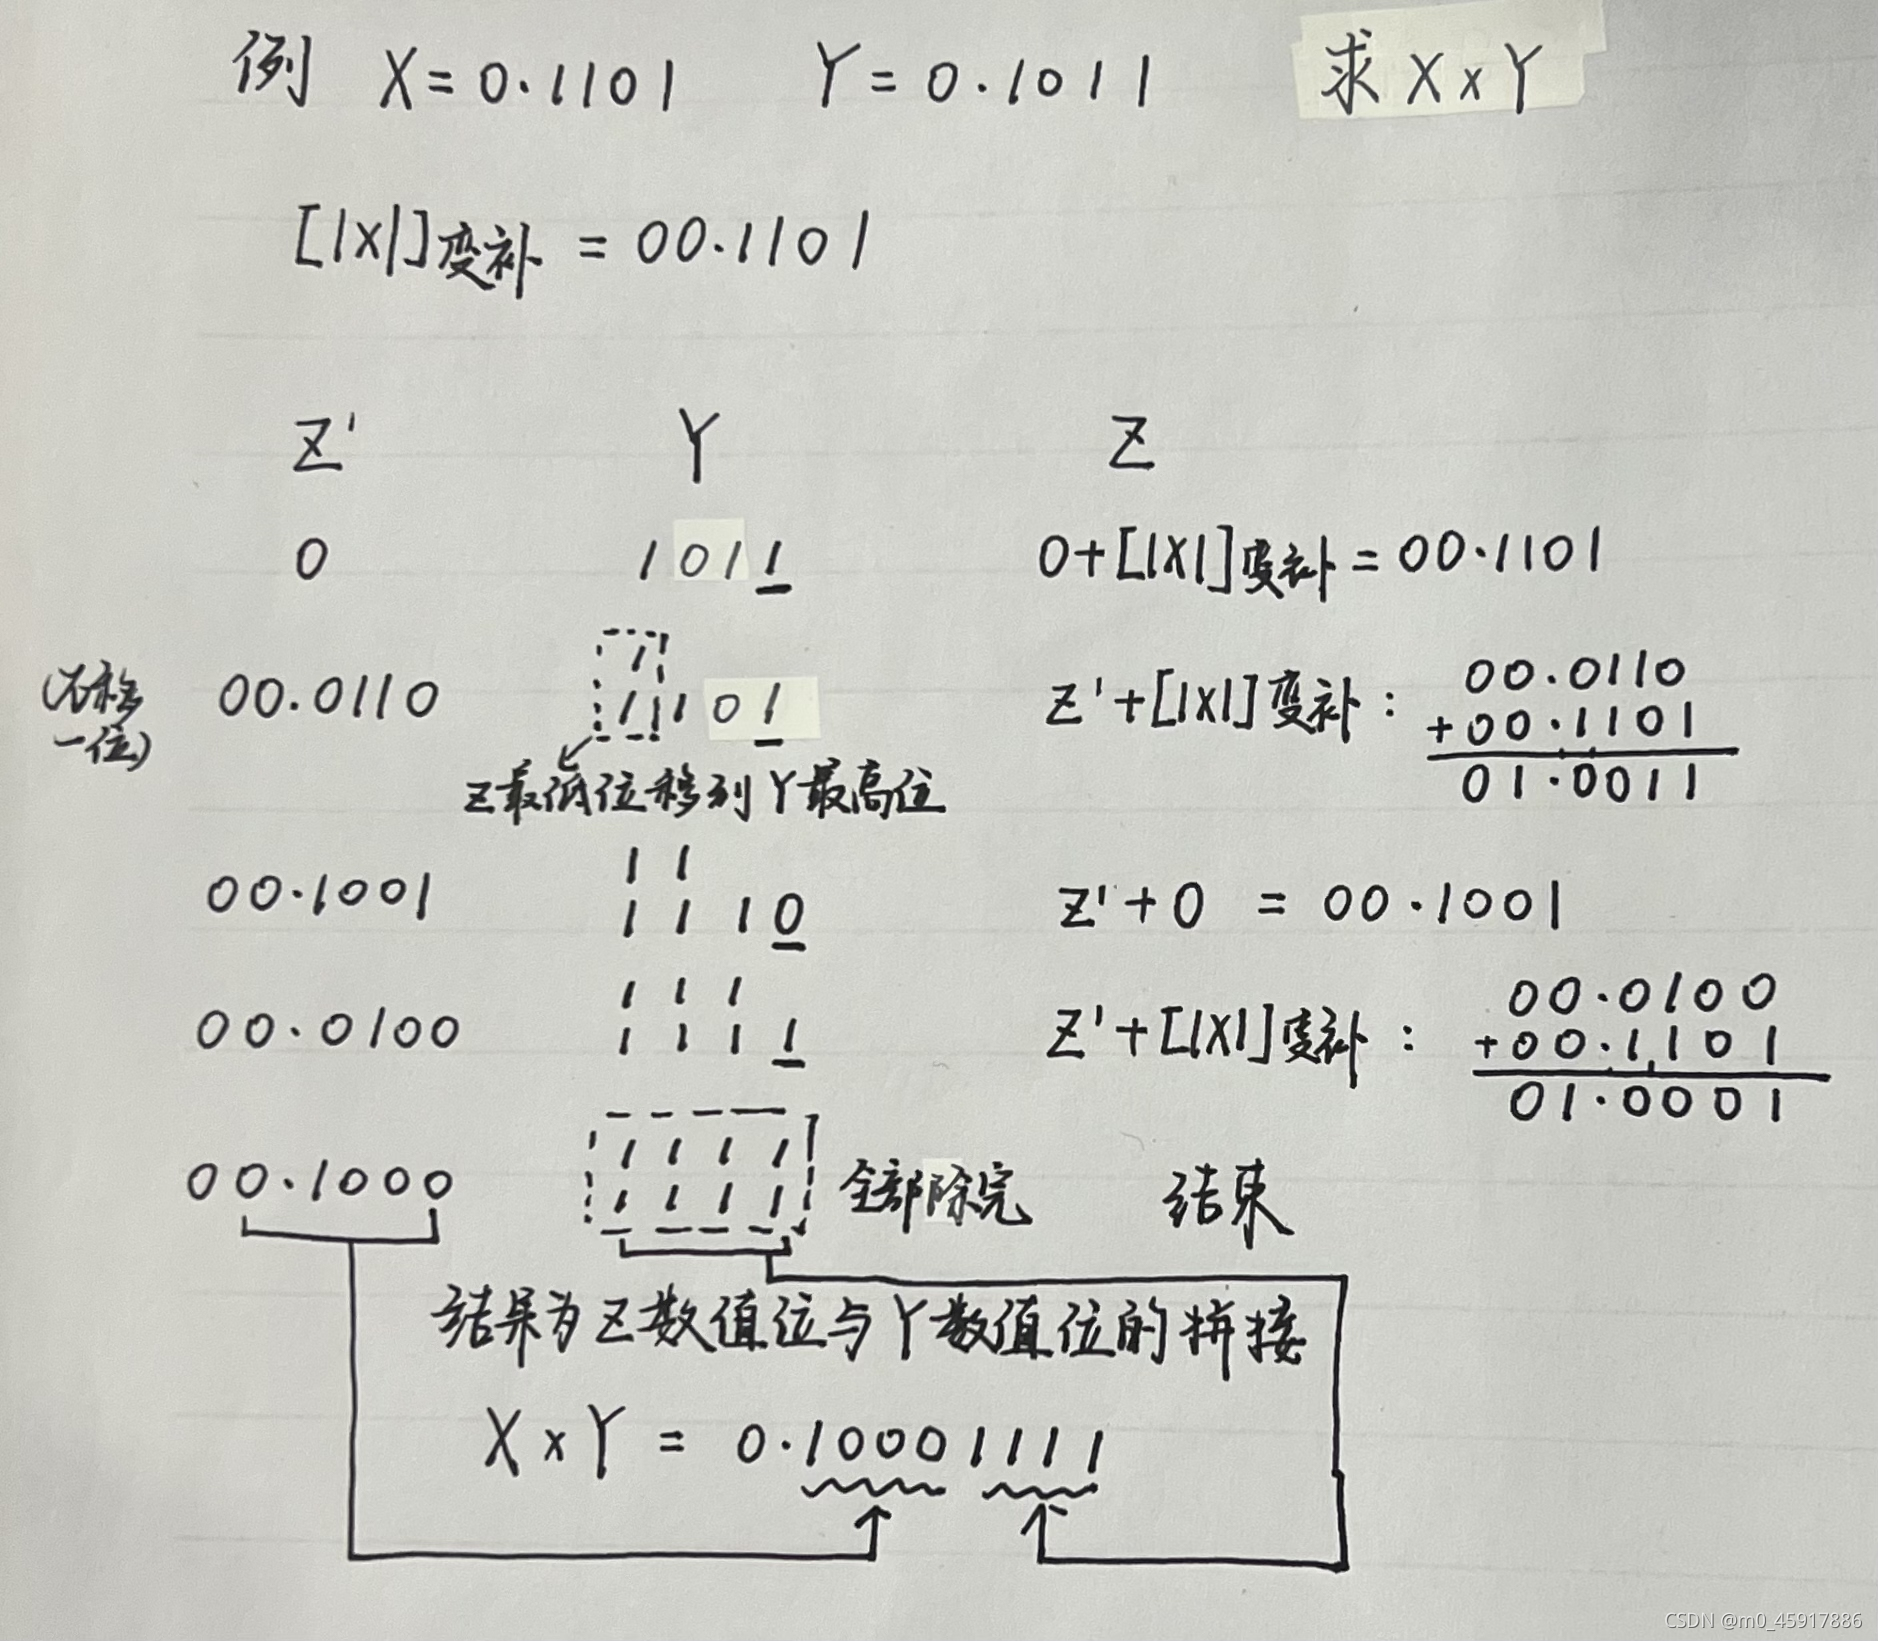 例 X=0.1101 Y=0.1011 求X×Y
[|X|]变补 = 00.1101
Z' Y Z
0 1011 0+[|X|]变补=00.1101
(右移一位) 00.0110 1 1101 Z'+[|X|]变补: 00.0110
+00.1101
01.0011
Z最低位移到Y最高位
00.1001 11 1110 Z'+0 = 00.1001
00.0100 111 1111 Z'+[|X|]变补: 00.0100
+00.1101
01.0001
00.1000 1111 1111 全部除完 结束
结果为Z数值位与Y数值位的拼接
X×Y = 0.10001111
CSDN @m0_45917886